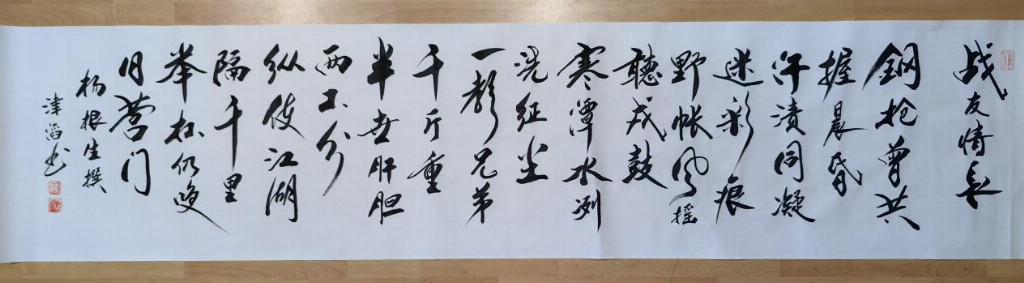 战友情長
鋼枪曾共
握晨昏
汗渍同凝
迷彩痕
野帐风摇
聽戍鼓
寒潭水冽
洗征尘
一声兄弟
千斤重
半世肝胆
两不分
纵使江湖
隔千里
举杯仍唤
旧营门
杨根生撰
津滔书